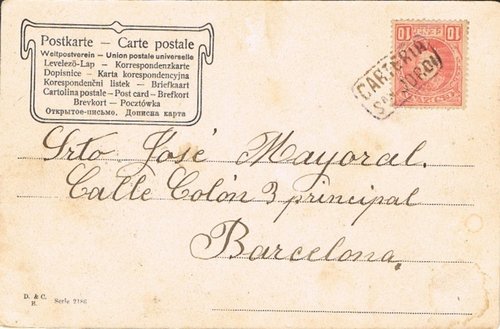 Postkarte — Carte postale
Weltpostverein — Union postale universelle
Levelező-Lap — Korrespondenzkarte
Dopisnice — Karta korespondencyjna
Korespondenční listek — Briefkaart
Cartolina postale — Post card — Brefkort
Brevkort — Pocztówka
Открытое-письмо, Дописна карта
10 10
CARTERIA
Srto José Mayoral.
Calle Colón 3 principal
Barcelona.
D. & C.
B. Serie 2186